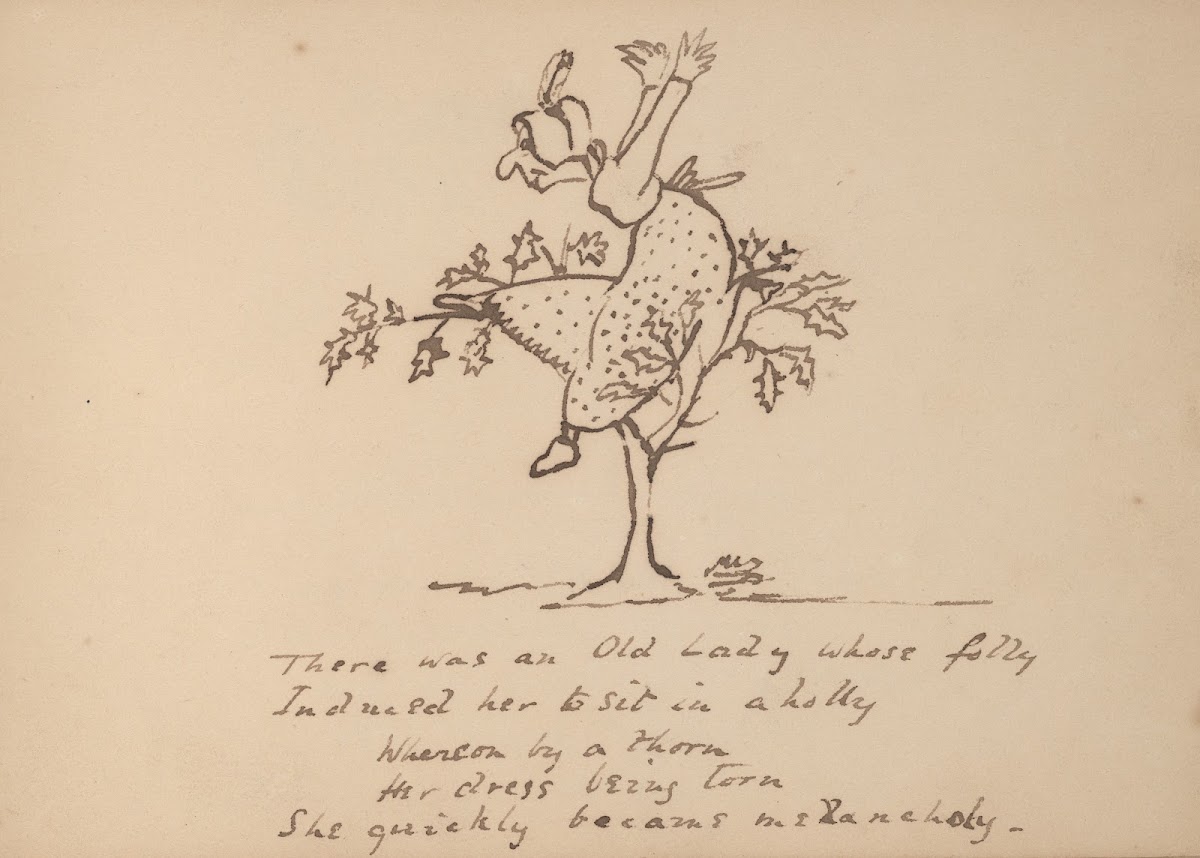 There was an Old Lady whose folly
Induced her to sit in a holly
Whereon by a thorn
Her dress being torn
She quickly became melancholy.